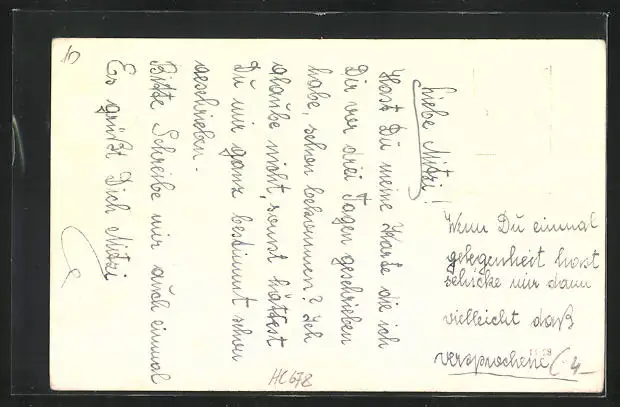 Liebe Mitzi!
Hast Du meine Karte die ich
Dir vor drei Tagen geschrieben
habe, schon bekommen? Ich
glaube nicht, sonst hättest
Du mir ganz bestimmt schon
geschrieben.
Bitte Schreibe mir auch einmal
Es grüßt Dich Mitzi
Wenn Du einmal
gelegenheit hast
schicke mir dann
vielleicht daß
versprochene
HC678